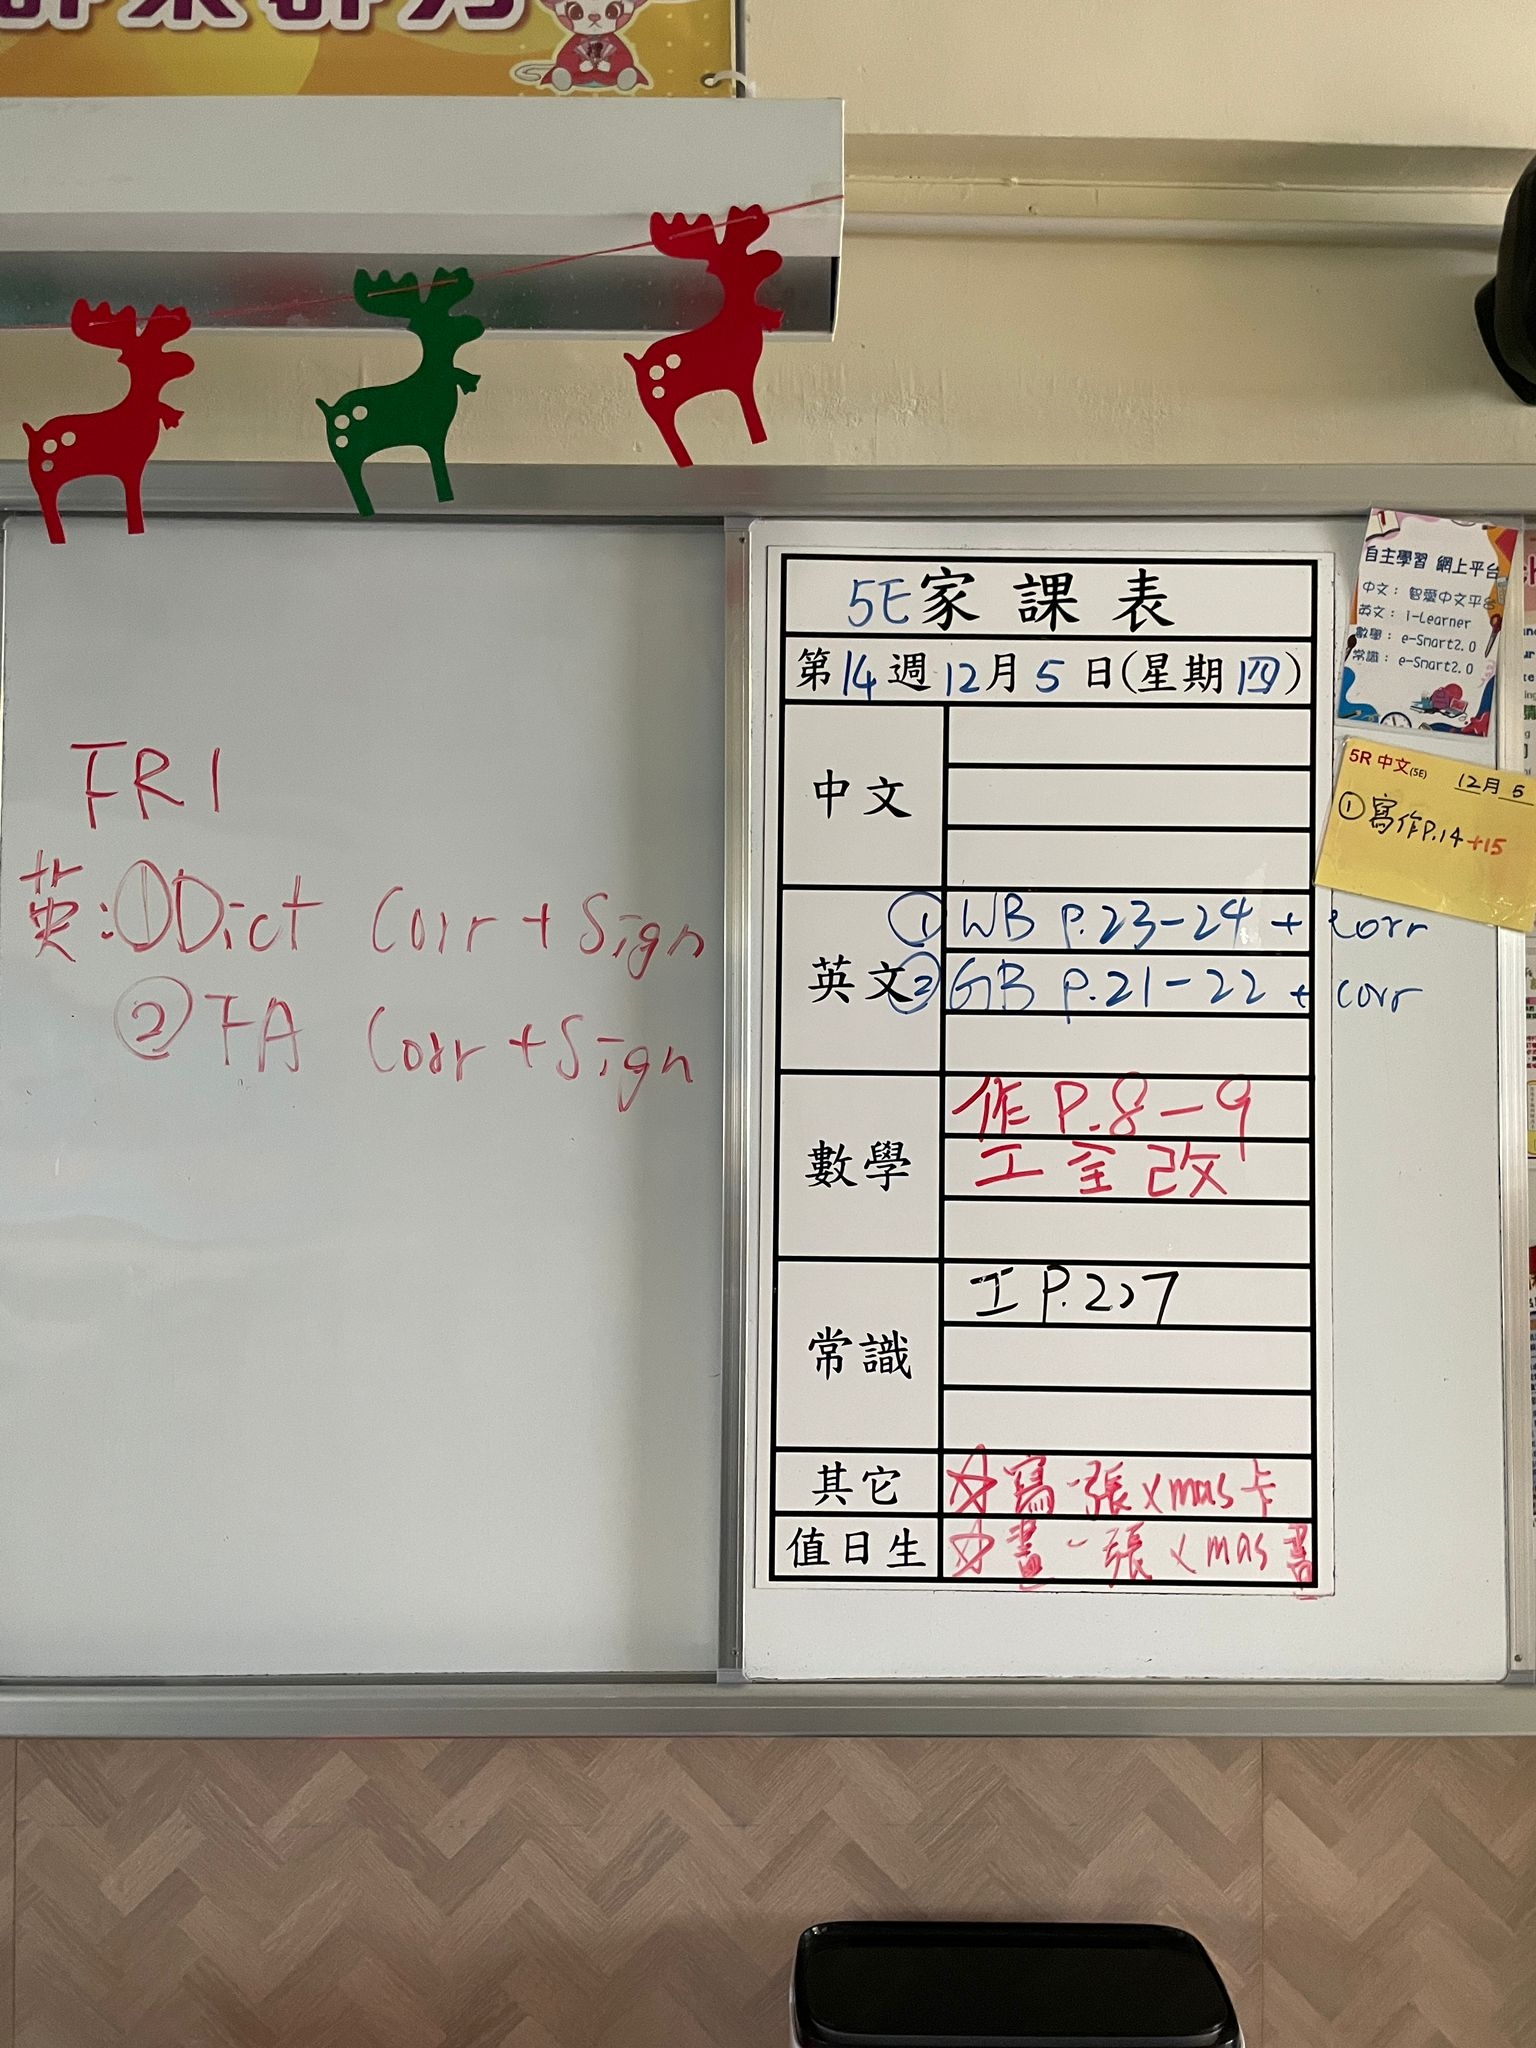 FRI
英:①Dict Corr + Sign
②FA Corr + Sign
5E家課表
第14週12月5日(星期四)
中文
英文
①WB P.23-24 + corr
②GB P.21-22 + corr
數學
作 P.8-9
工全改
常識
工 P.27
其它
☆寫一張xmas卡
值日生
☆畫一張xmas
自主學習 網上平台
中文:智愛中文平台
英文:i-Learner
數學:e-Smart2.0
常識:e-Smart2.0
5R 中文(5E)
12月5
①寫作P.14+15